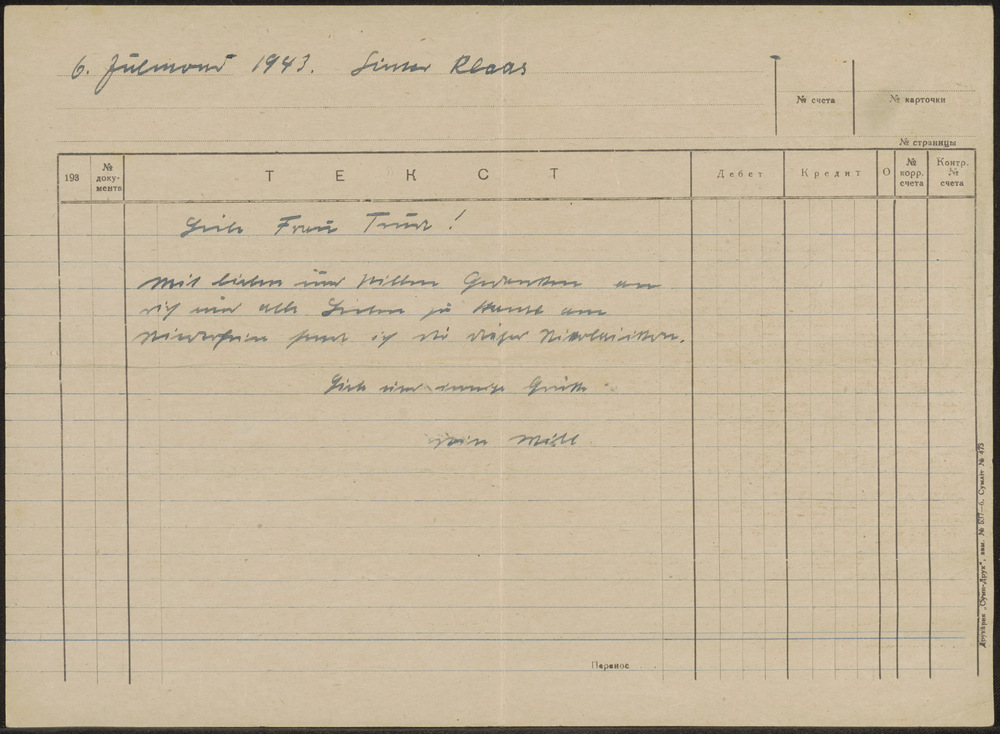 6. Julmond 1943. Sinter Klaas
№ счета
№ карточки
№ страницы
193
№ доку-
мента
ТЕКСТ
Дебет
Кредит
О
№ корр. счета
Контр. № счета
Liebe Frau Trude!
Mit lieben und stillen Gedanken an
dich und alle Lieben zu Hause am
Niederrhein sende ich dir diesen
Liebe und innige Grüße
dein Will
Перенос